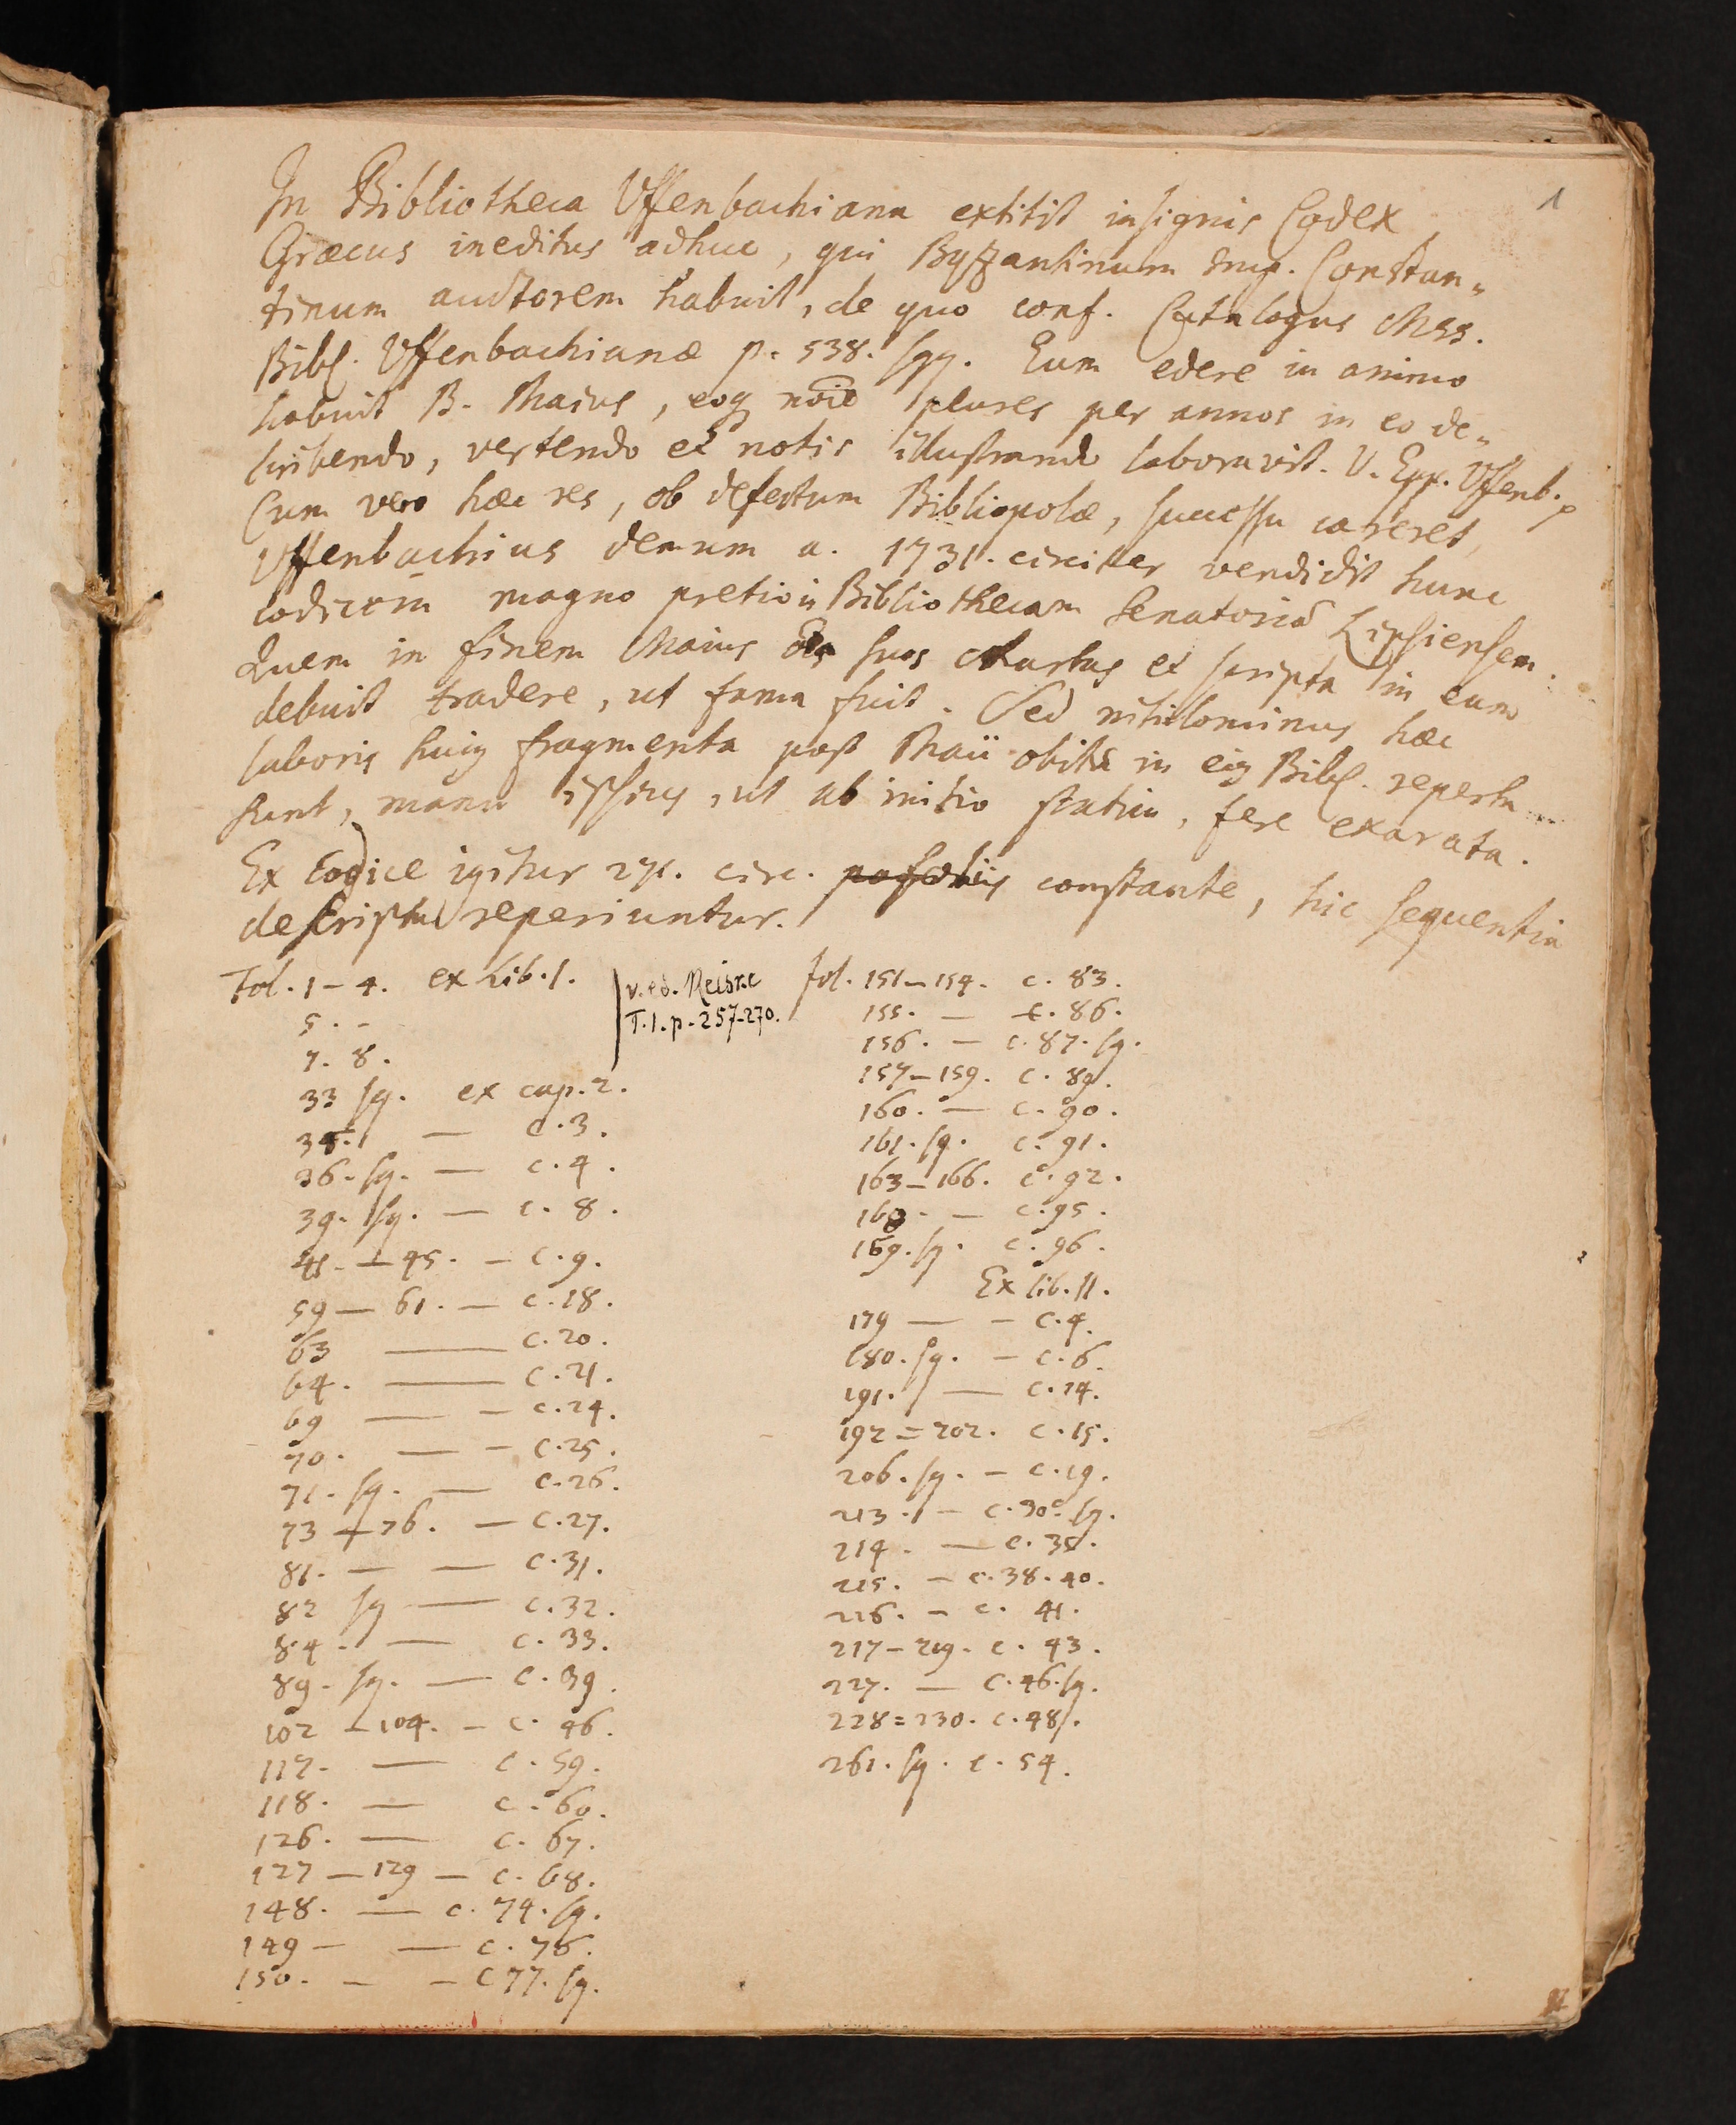 1
In Bibliotheca Uffenbachiana extitit insignis Codex
Græcus ineditus adhuc, qui Byzantinum Imp. Constan„
tinum auctorem habuit, de quo conf. Catalogus Mss.
Bibl. Uffenbachianæ p. 538. sqq. Eum edere in animo
habuit B. Maius, eoq noīe plures per annos in eo de„
scribendo, vertendo et notis illustrando laboravit. V. Epp. Uffenb. p
Cum vero hæc res, ob defectum Bibliopolæ, successu careret,
Uffenbachius demum a. 1731. circiter vendidit hunc
codicem magno pretio in Bibliothecam Senatoriā Lipsiensem.
Quem in finem Maius suos chartas et scripta in eam
debuit tradere, ut fama fuit. Sed nihilominus hæc
laboris huiq fragmenta post Maii obitū in eiq Bibl. reperta
sunt, manu ipsius, ut ab initio statim, fere exarata.
Ex Codice igitur 271. circ. constante, hic sequentia
descripta reperiuntur.
Fol. 1-4. ex Lib. I.
v. ed. Reisk.
T. I. p. 257-270.
5. -
7. 8.
33 sq. ex cap. 2.
35. — c. 3.
36. sq. — c. 4.
39. sq. — c. 8.
41. — 45. — c. 9.
59 — 61. — c. 18.
63 — c. 20.
64. — c. 21.
69 — - c. 24.
70. — - c. 25.
71. sq. — c. 26.
73 — 76. — c. 27.
81. — — c. 31.
82 sq — c. 32.
84. — c. 33.
89. sq. — c. 39.
102 - 104. - c. 46.
117. — c. 59.
118. — c. 60.
126. — c. 67.
127 — 129 — c. 68.
148. — c. 74. sq.
149 — — c. 76.
150. — — c 77. sq.
fol. 151-154. c. 83.
155. — c. 86.
156. — c. 87. sq.
157-159. c. 89.
160. — c. 90.
161. sq. c. 91.
163-166. c. 92.
168. — c. 95.
169. sq. c. 96.
Ex lib. II.
179 — - c. 4.
180. sq. - c. 6.
191. — c. 14.
192 = 202. c. 15.
206. sq. - c. 19.
213. - c. 30. sq.
214. — c. 35.
215. - c. 38. 40.
216. - c. 41.
217-219. c. 43.
227. — c. 46. sq.
228 = 230. c. 48.
261. sq. c. 54.